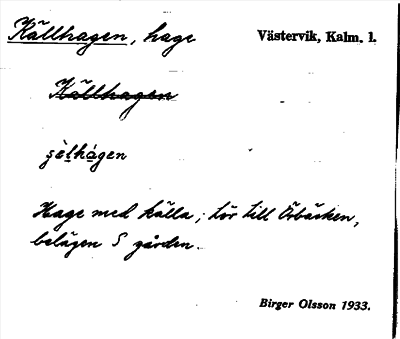 Källhagen, hage
Västervik, Kalm. l.
Källhagen
Hage med källa, hör till Örbäcken,
belägen S gården.
Birger Olsson 1933.